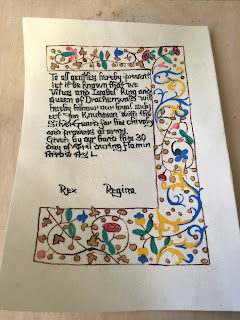 To all gentles hereby present
let it be known that we
Vitus and Isabel King and
Queen of Drachenwald will
hereby honour our loyal subj
ect Jon Knutsson with the
Silver Guard for his chivalry
and prowess at arms
Given by our hands this 30
day of April during Flamin
Arrow AS L
Rex Regina